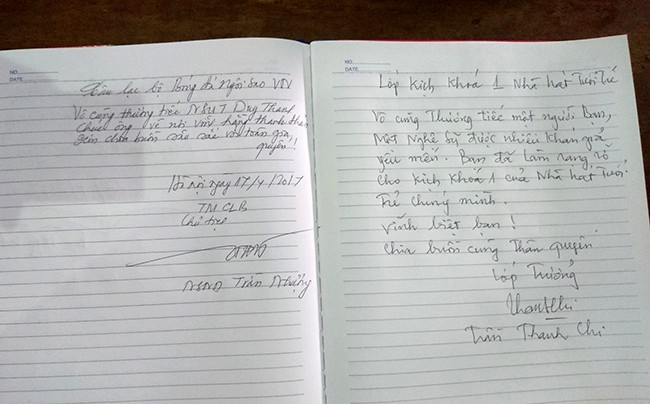 NO.
DATE
Câu lạc bộ Bóng đá Ngôi sao VN
Vô cùng thương tiếc NSƯT Duy Thanh
chúc ông về nơi vĩnh hằng thanh thản
gửi chia buồn sâu sắc với toàn gia
quyến!
Hà Nội ngày 17/4/2017
TM CLB
Chủ tịch
NSND Trần Nhượng
NO.
DATE
Lớp kịch khoá 1 Nhà hát Tuổi Trẻ
Vô cùng Thương tiếc một người Bạn,
Một Nghệ sỹ được nhiều khán giả
yêu mến. Bạn đã làm rạng rỡ
cho kịch khoá 1 của Nhà hát Tuổi
Trẻ chúng mình.
Vĩnh biệt bạn!
Chia buồn cùng Thân quyến
Lớp Trưởng
Trần Thanh Chi